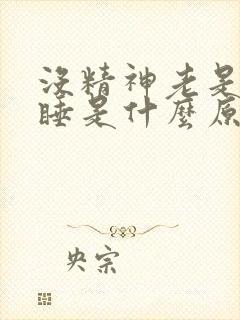 沒精神老是
睡是什麼原
央宗